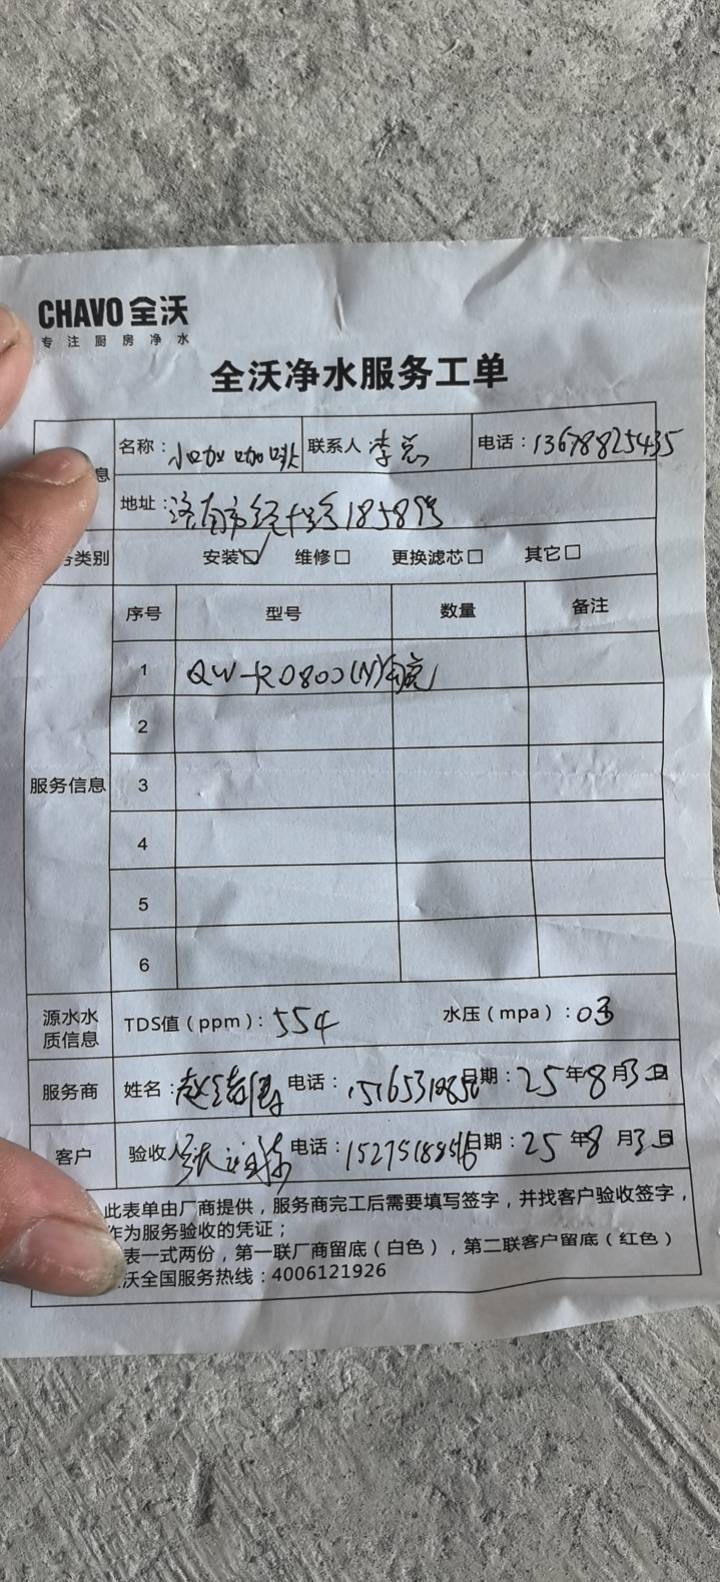 CHAVO 全沃
专注厨房净水
全沃净水服务工单
息 名称：小咖咖啡 联系人 李总 电话：13678825435
地址：济南市经十路18589号
务类别 安装☑ 维修□ 更换滤芯□ 其它□
序号 型号 数量 备注
1 QW-RO800(N)
2
服务信息 3
4
5
6
源水水质信息 TDS值（ppm）：554 水压（mpa）：03
服务商 姓名：赵 电话： 日期：25年8月3日
客户 验收人 张 电话： 日期：25年8月3日
此表单由厂商提供，服务商完工后需要填写签字，并找客户验收签字，
作为服务验收的凭证；
表一式两份，第一联厂商留底（白色），第二联客户留底（红色）
沃全国服务热线：4006121926